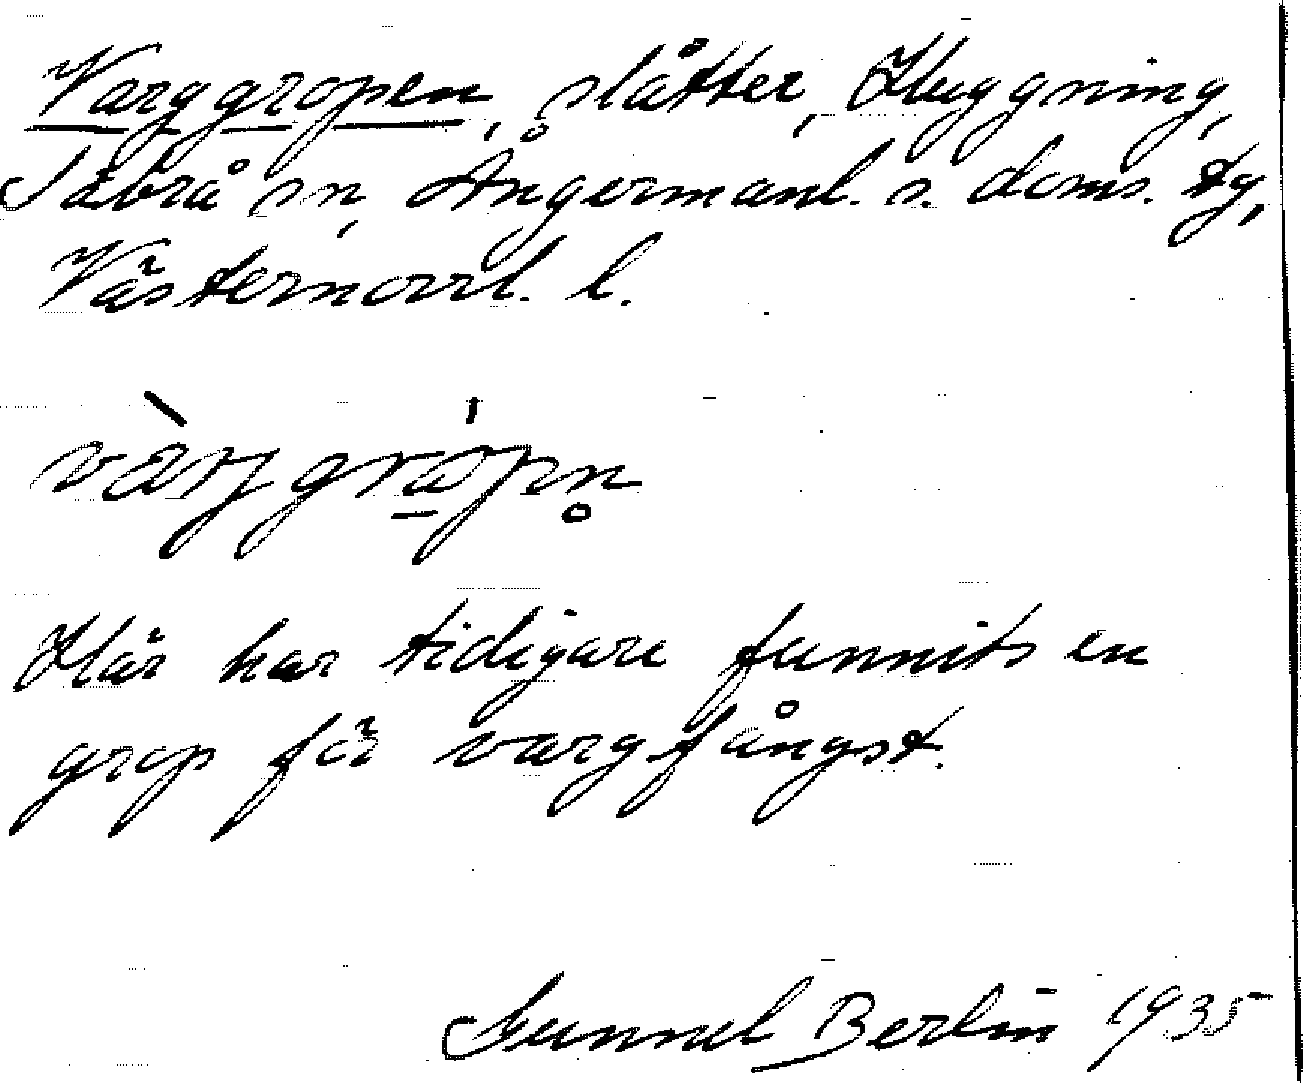 Varggropen, slåtter, Huggning,
Säbrå sn, Ångermanl. s. doms. tg,
Västernorrl. l.
Här har tidigare funnits en
grop för vargfångst.
Gunnel Berlin 1935